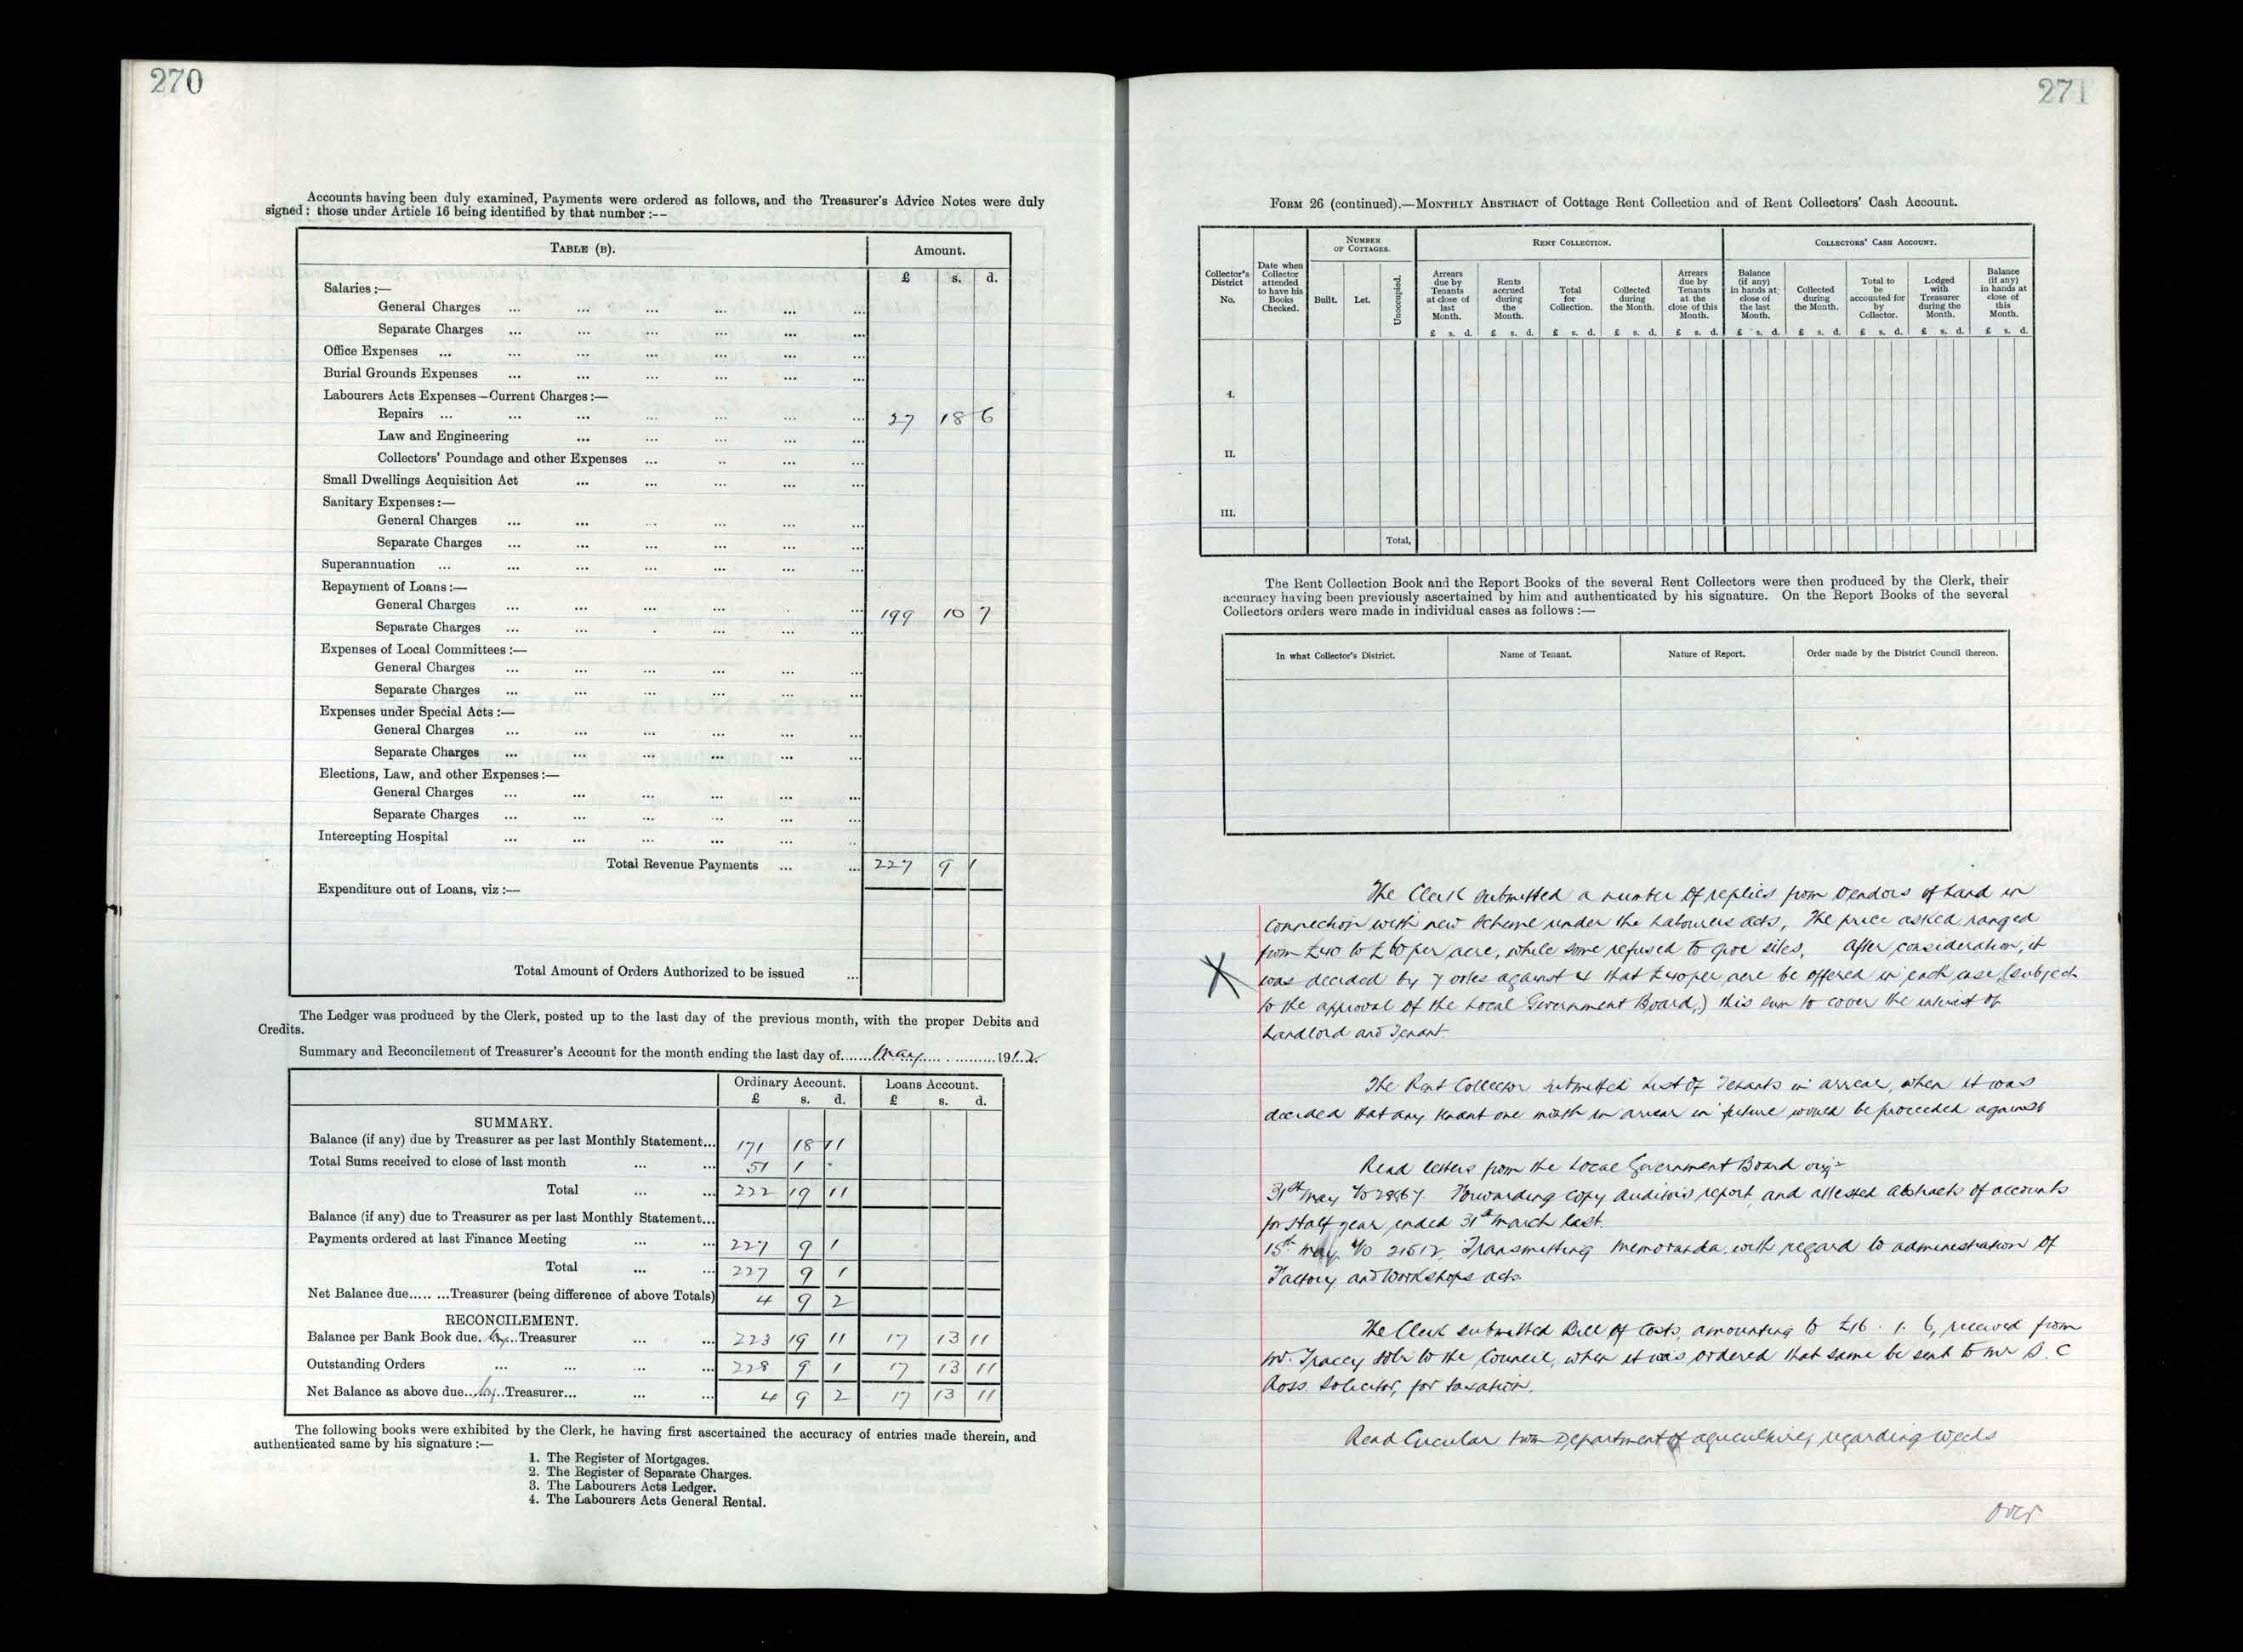 270
Accounts having been duly examined, Payments were ordered as follows, and the Treasurer's Advice Notes were duly
signed: those under Article 16 being identified by that number :--
TABLE (B). Amount.
£ s. d.
Salaries :—
General Charges ... ... ... ... ... ...
Separate Charges ... ... ... ... ... ...
Office Expenses ... ... ... ... ... ...
Burial Grounds Expenses ... ... ... ... ... ...
Labourers Acts Expenses—Current Charges :—
Repairs ... ... ... ... ... ... ... 27 18 6
Law and Engineering ... ... ... ... ...
Collectors' Poundage and other Expenses ... .. ... ...
Small Dwellings Acquisition Act ... ... ... ... ...
Sanitary Expenses :—
General Charges ... ... ... ... ... ...
Separate Charges ... ... ... ... ... ...
Superannuation ... ... ... ... ... ... ...
Repayment of Loans :—
General Charges ... ... ... ... . ... 199 10 7
Separate Charges ... ... . ... ... ...
Expenses of Local Committees :—
General Charges ... ... ... ... ... ...
Separate Charges ... ... ... ... ... ...
Expenses under Special Acts :—
General Charges ... ... ... ... ... ...
Separate Charges ... ... ... ... ... ...
Elections, Law, and other Expenses :—
General Charges ... ... ... ... ... ...
Separate Charges ... ... ... ... ... ...
Intercepting Hospital ... ... ... ... ... ..
Total Revenue Payments ... ... 227 9 1
Expenditure out of Loans, viz :—
Total Amount of Orders Authorized to be issued ...
The Ledger was produced by the Clerk, posted up to the last day of the previous month, with the proper Debits and
Credits.
Summary and Reconcilement of Treasurer's Account for the month ending the last day of......May...............1912
Ordinary Account. Loans Account.
£ s. d. £ s. d.
SUMMARY.
Balance (if any) due by Treasurer as per last Monthly Statement... 171 18 11
Total Sums received to close of last month ... ... 51 1 .
Total ... ... 222 19 11
Balance (if any) due to Treasurer as per last Monthly Statement...
Payments ordered at last Finance Meeting ... ... 227 9 1
Total ... ... 227 9 1
Net Balance due........Treasurer (being difference of above Totals) 4 9 2
RECONCILEMENT.
Balance per Bank Book due. by...Treasurer ... ... 223 19 11 17 13 11
Outstanding Orders ... ... ... ... 228 9 1 17 13 11
Net Balance as above due...by..Treasurer... ... ... 4 9 2 17 13 11
The following books were exhibited by the Clerk, he having first ascertained the accuracy of entries made therein, and
authenticated same by his signature :—
1. The Register of Mortgages.
2. The Register of Separate Charges.
3. The Labourers Acts Ledger.
4. The Labourers Acts General Rental.
271
FORM 26 (continued).—MONTHLY ABSTRACT of Cottage Rent Collection and of Rent Collectors' Cash Account.
NUMBER OF COTTAGES. RENT COLLECTION. COLLECTORS' CASH ACCOUNT.
Collector's District No. Date when Collector attended to have his Books Checked. Built. Let. Unoccupied. Arrears due by Tenants at close of last Month. Rents accrued during the Month. Total for Collection. Collected during the Month. Arrears due by Tenants at the close of this Month. Balance (if any) in hands at close of the last Month. Collected during the Month. Total to be accounted for by Collector. Lodged with Treasurer during the Month. Balance (if any) in hands at close of this Month.
£ s. d. £ s. d. £ s. d. £ s. d. £ s. d. £ s. d. £ s. d. £ s. d. £ s. d. £ s. d.
I.
II.
III.
Total,
The Rent Collection Book and the Report Books of the several Rent Collectors were then produced by the Clerk, their
accuracy having been previously ascertained by him and authenticated by his signature. On the Report Books of the several
Collectors orders were made in individual cases as follows :—
In what Collector's District. Name of Tenant. Nature of Report. Order made by the District Council thereon.
The Clerk submitted a number of replies from Vendors of Land in
connection with new Scheme under the Labourers Acts, The price asked ranged
from £40 to £60 per acre, while some refused to give sites. After consideration, it
X was decided by 7 votes against 4 that £40 per acre be offered in each case (subject
to the approval of the Local Government Board,) this sum to cover the interest of
Landlord and Tenant.
The Rent Collector submitted List of Tenants in arrear, when it was
decided that any tenant one month in arrear in future would be proceeded against
Read letters from the Local Government Board viz:-
31st May Forwarding copy Auditor's report, and attested Abstracts of accounts
for Half year ended 31st March last.
15th May 21512 Transmitting Memoranda with regard to administration of
Factory and Workshops Acts.
The Clerk submitted Bill of Costs, amounting to £16. 1. 6, received from
Mr. Tracey Solr to the Council, when it was ordered that same be sent to Mr. C
Ross. Solicitor, for taxation.
Read Circular from Department of Agriculture, regarding weeds
Over